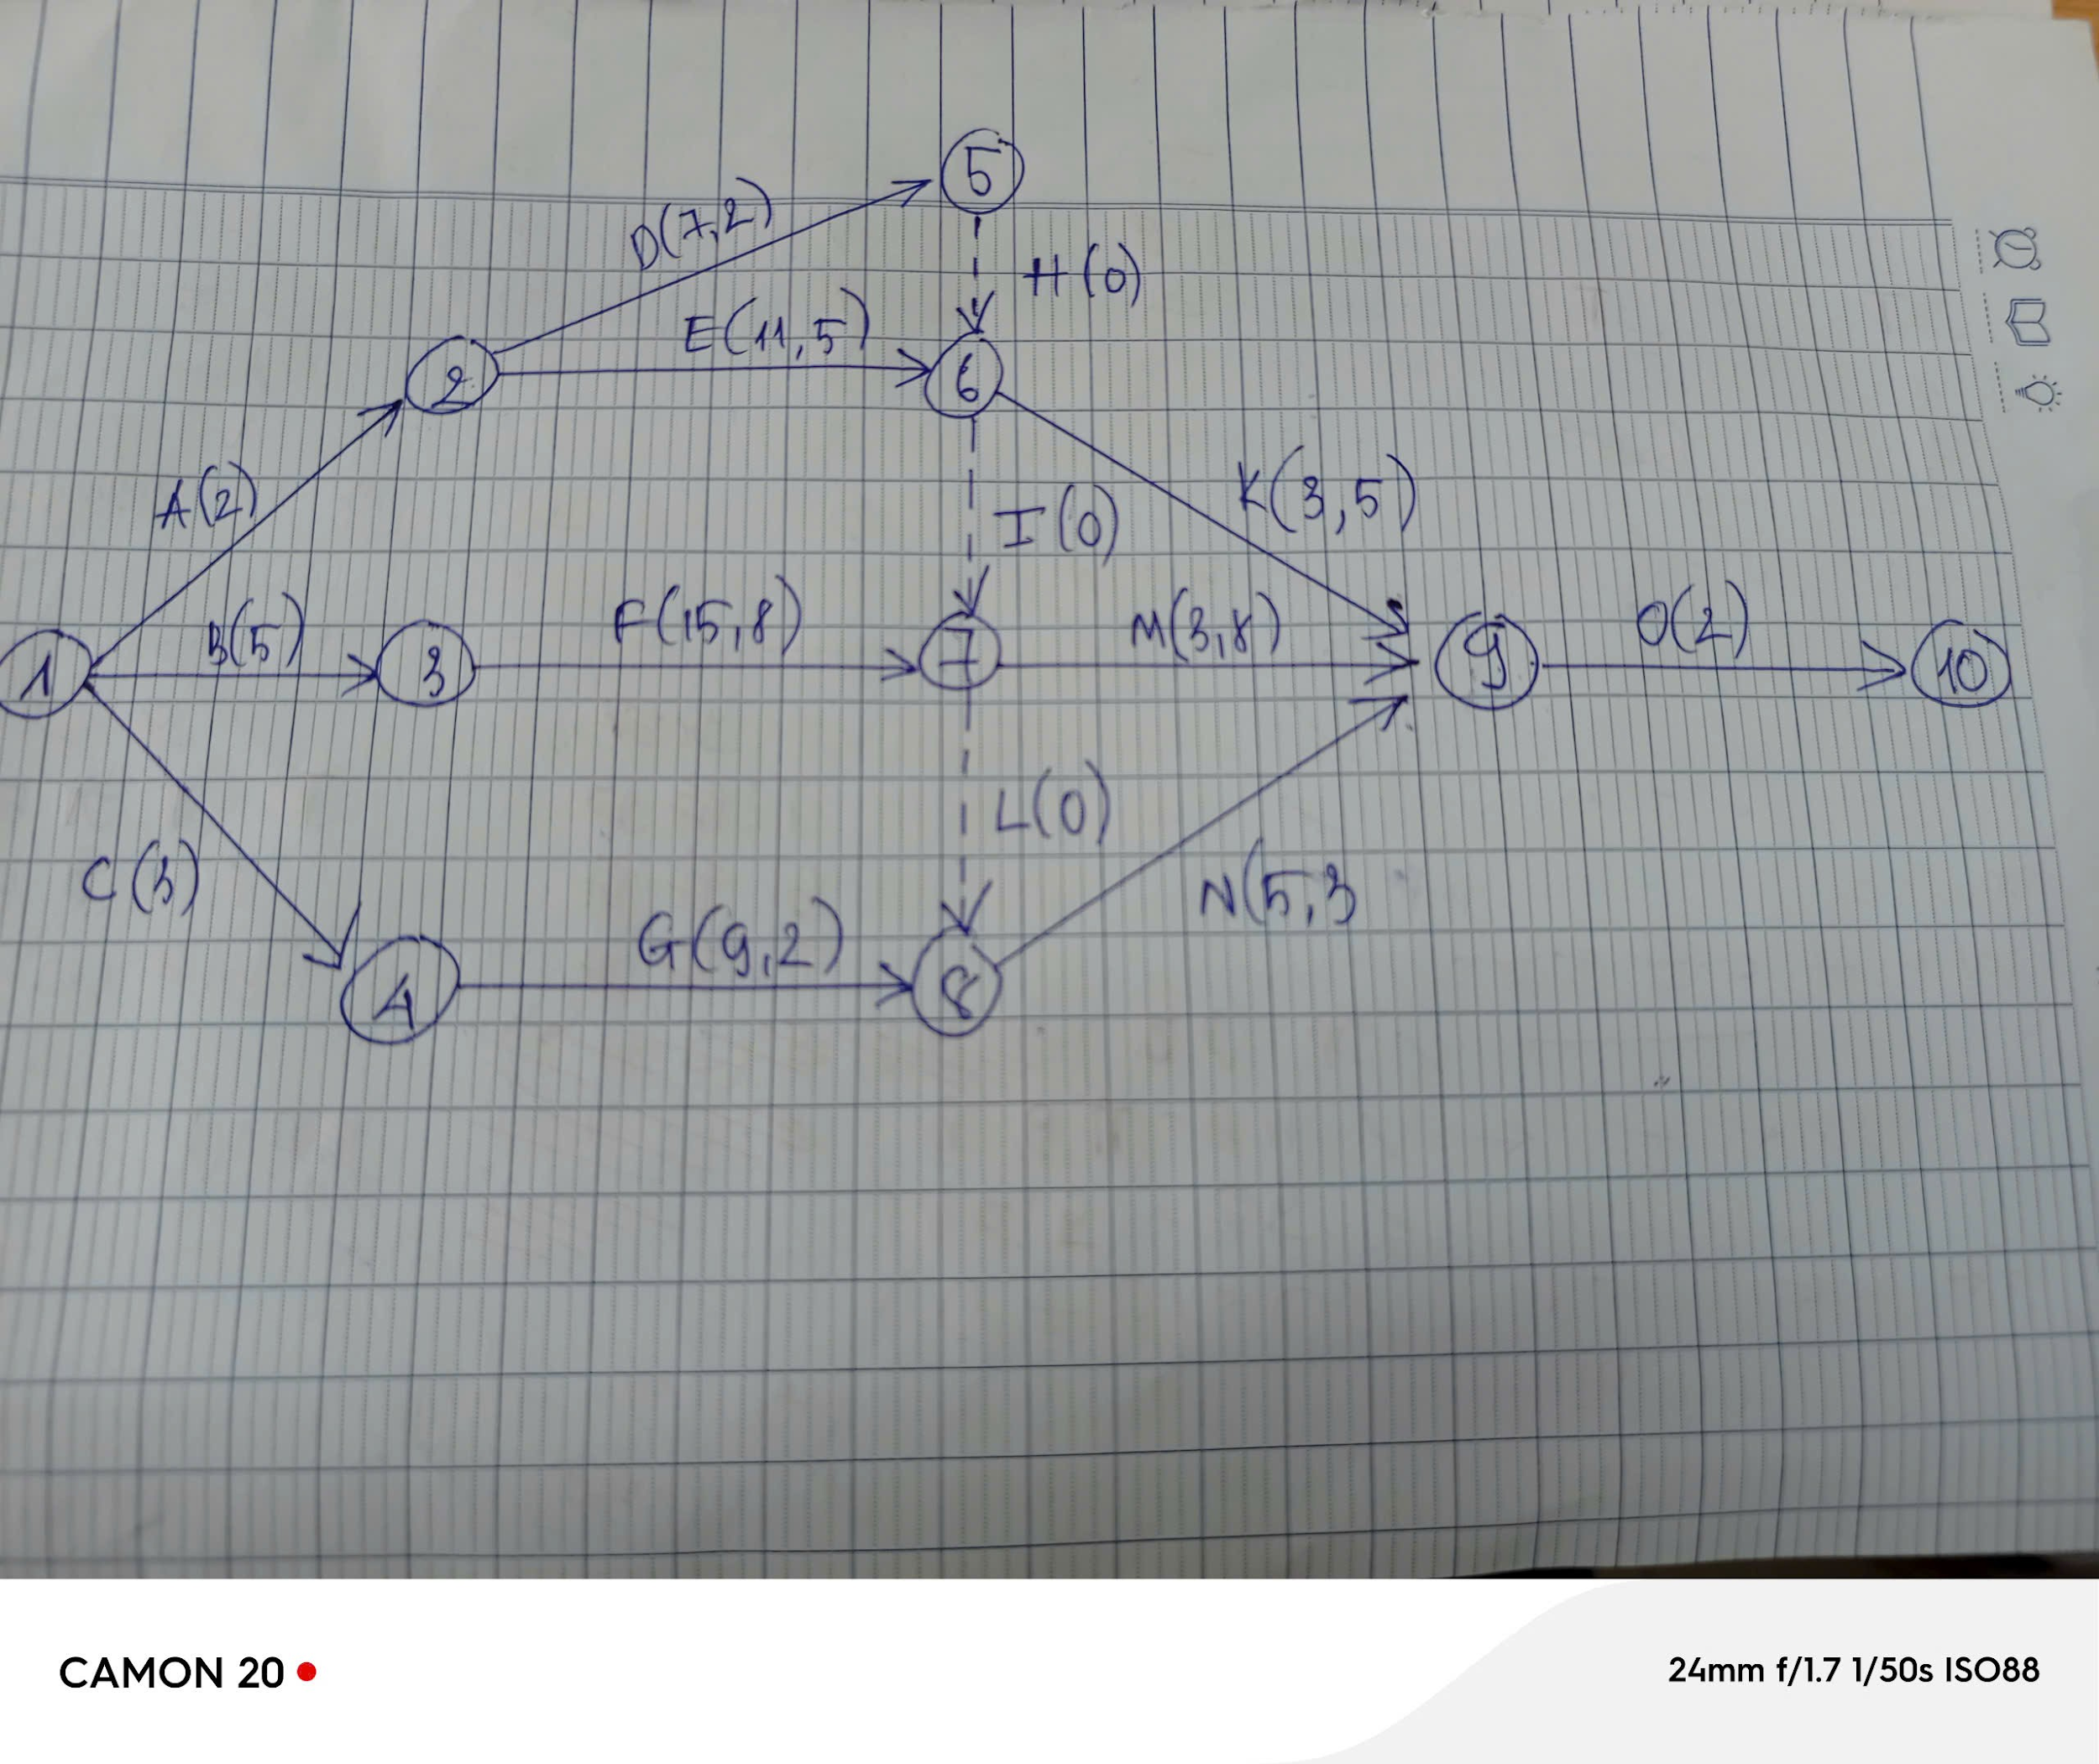 5
D(7,2)
H(0)
E(11,5)
2
6
A(2)
K(3,5)
I(0)
B(5)
F(15,8)
M(3,8)
O(2)
1
3
7
9
10
L(0)
C(3)
N(5,3
G(9,2)
4
8
CAMON 20
24mm f/1.7 1/50s ISO88